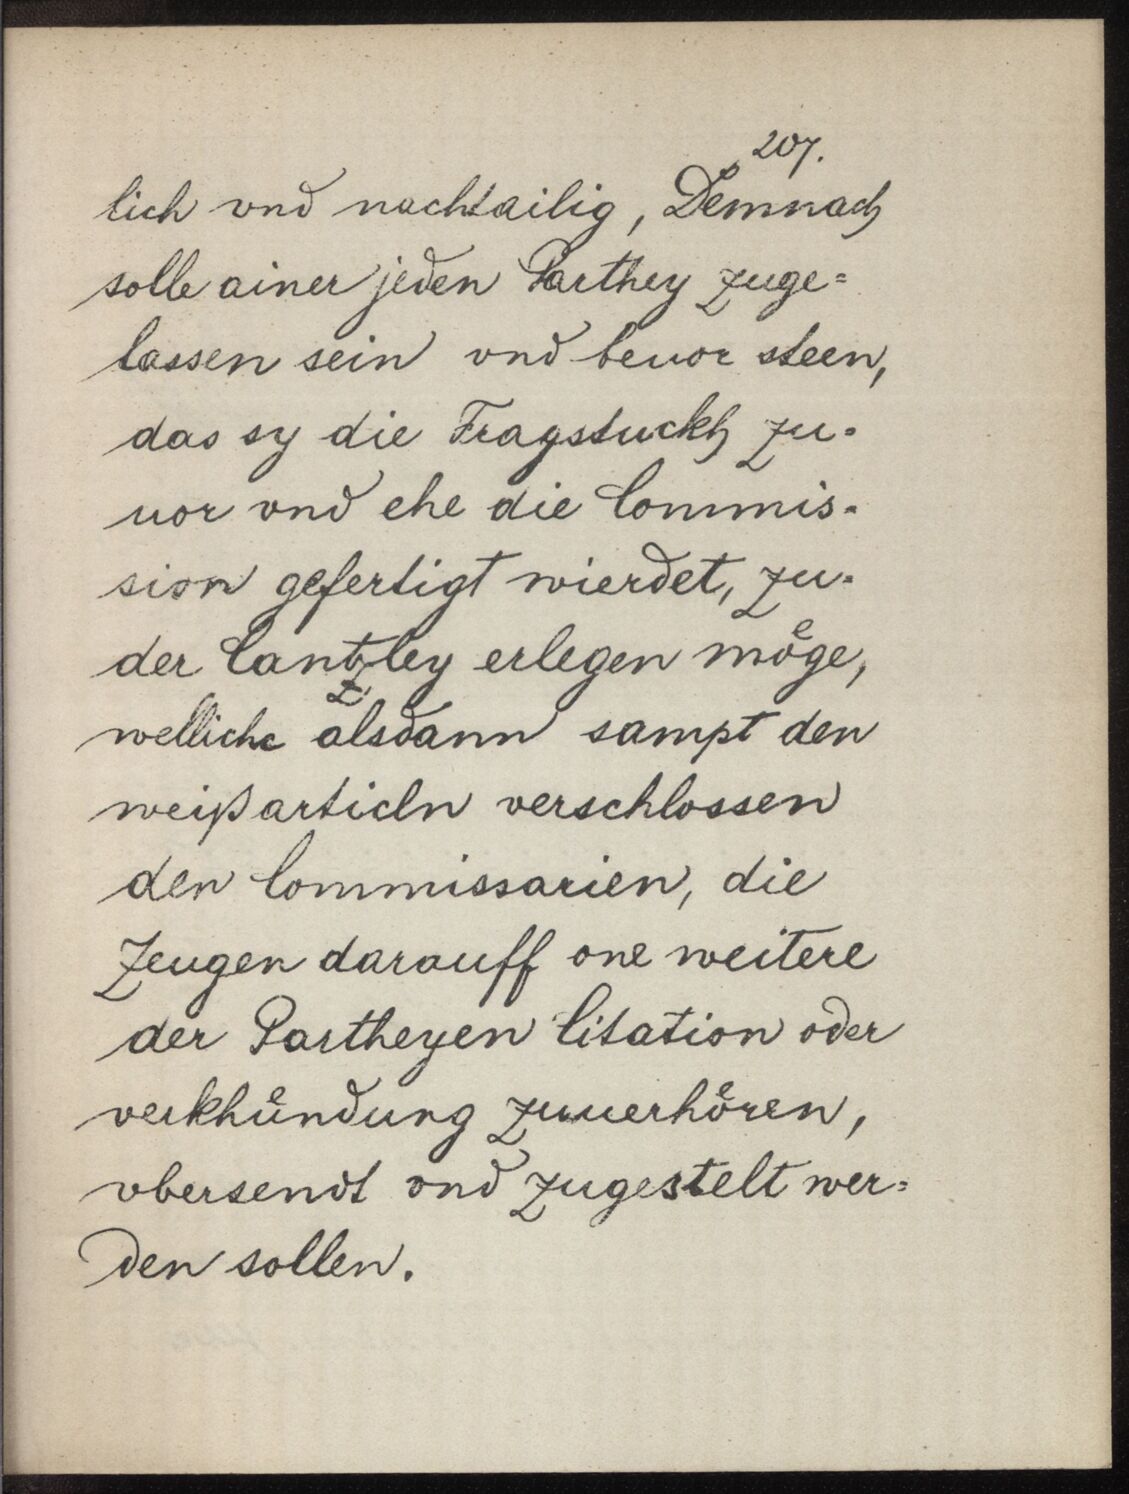 207.
lich vnd nachtailig, Demnach
solle ainer jeden Parthey zuge=
lassen sein vnd beuor steen,
das sy die Fragstuckh zu=
uor vnd ehe die Commis=
sion gefertigt wierdet, zu=
der Cantzley erlegen möge,
welliche alsdann sampt den
weißarticln verschlossen
den Commissarien, die
Zeugen darauff one weitere
der Partheyen Citation oder
verkhündung zuuerhören,
vbersendt vnd zugestelt wer=
den sollen.